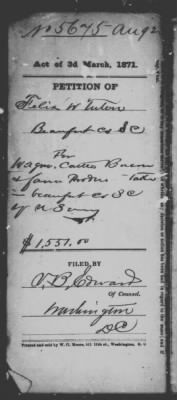 No 5675 Aug 2
Act of 3d March, 1871.
PETITION OF
Felix W Tuten
Beaufort Co SC
For
Wagon. Cattle Bacon
& farm Prod Taken
in Beaufort Co SC
by U S Army
$1,551.00
FILED BY
V. B. Edwards
Of Counsel.
Washington
DC
Printed and sold by W. H. Moore, 511 11th st., Washington, D. C.